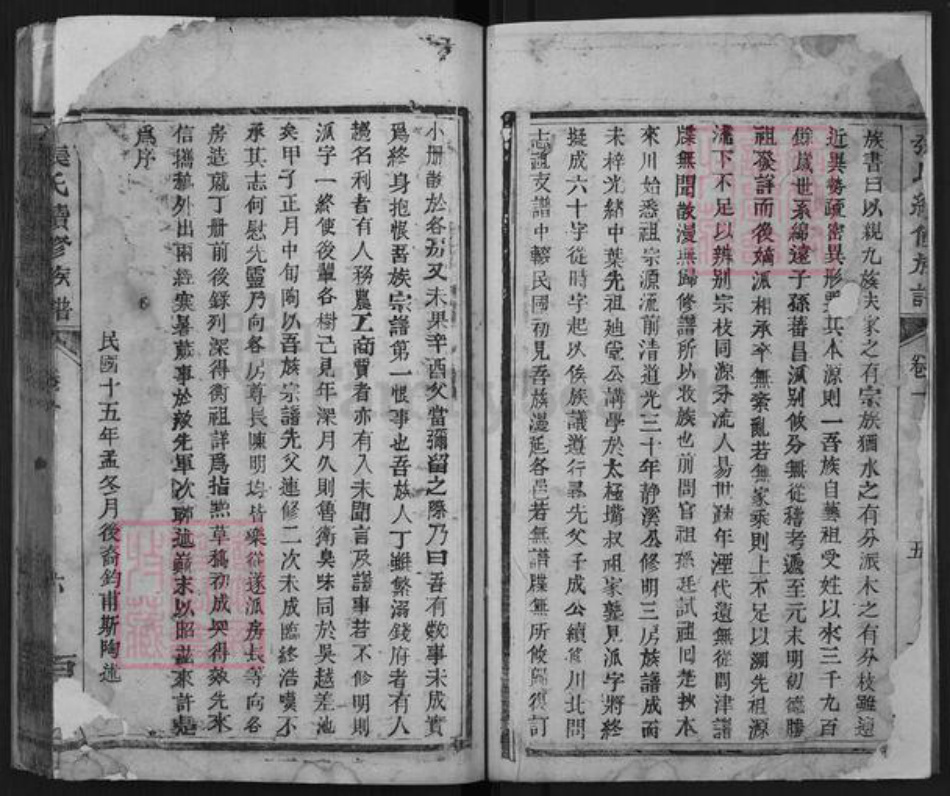 族書曰以親九族夫家之有宗族猶水之有分派木之有分枝雖遠
近異勢疏密異形要其本源則一吾族自藝祖受姓以來三千九百
餘歲世系綿遠子孫蕃昌派別攸分無從稽考遞至元末明初德勝
祖發詳而後嫡派相承卒無紊亂若無家乘則上不足以溯先祖源
流下不足以辨别宗枝同源分流人易世疎年湮代遠無從問津譜
牒無聞散漫無歸修譜所以收族也前問官祖孫廷試祖囘楚抄本
來川始悉祖宗源流前清道光三十年静溪公修明三房族譜成而
未梓光緒中葉先祖廸堂公講學於太極嘴叔祖家塾見派字將終
擬成六十字從時字起以俟族議遵行暴先父子成公續修川北問
志直支譜中轅民國初見吾族漫延各邑若無譜牒無所攸歸復訂
小册散於各房又未果辛酉父當彌留之際乃曰吾有数事未成實
爲終身抱恨吾族宗譜第一恨事也吾族人丁雖繁溺錢府者有人
趨名利者有人務農工商賈者亦有人未聞言及譜事若不修明則
派字一終使後輩各樹己見年深月久則魯衛臭味同於吳越差池
矣甲子正月中旬陶以吾族宗譜先父連修二次未成臨終浩嘆不
承其志何慰先靈乃向各房尊長陳明均皆樂從遂派房長等向各
房造就丁册前後錄列深得衡祖詳爲指點草稿初成興得效先來
信攜稿外出兩經寒暑蕆事於效先軍次聊述巔末以昭茲來許是
爲序
民國十五年孟冬月後裔鈞甫斯陶述
氏續修族譜
卷一
五
六